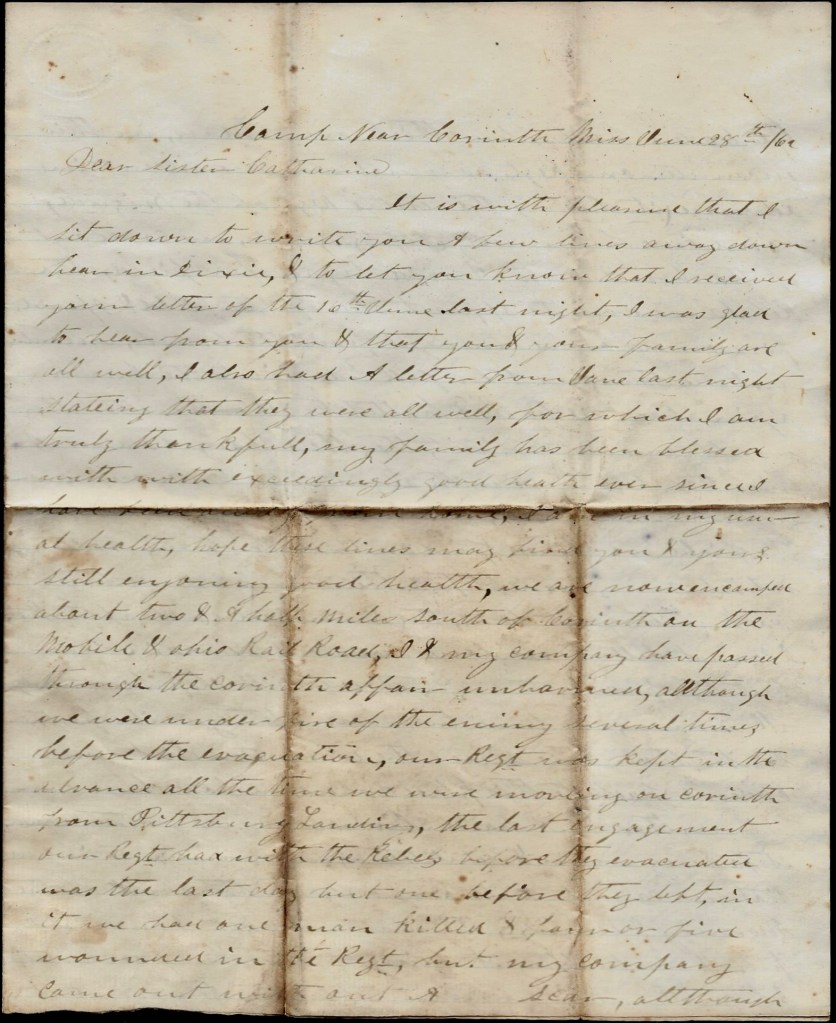 Camp Near Corinth Miss June 28th /62
Dear Sister Catharine
It is with pleasure that I
sit down to write you A few lines away down
hear in Dixie, & to let you know that I received
your letter of the 16th June last night, I was glad
to hear from you & that you & your family are
all well, I also had A letter from Jane last night
stateing that they were all well, for which I am
truly thankfull, my family has been blessed
with with exceedingly good health ever since I
have been away from home, I am in my usu-
al health, hope these lines may find you & yours
still enjoning good health, we are now encamped
about two & A half miles south of Corinth on the
Mobile & ohio Rail Road, I & my company have passed
through the corinth affair unharmed, allthough
we were under fire of the enimy several times
before the evacuation, our Regt was kept in the
advance all the time we were moveing on corinth
from Pittsburg Landing, the last engagement
our Regt had with the Rebels before they evacuated
was the last day but one before they left, in
it we had one man killed & four or five
wounded in the Regt, but my company
came out with out A scar, allthough